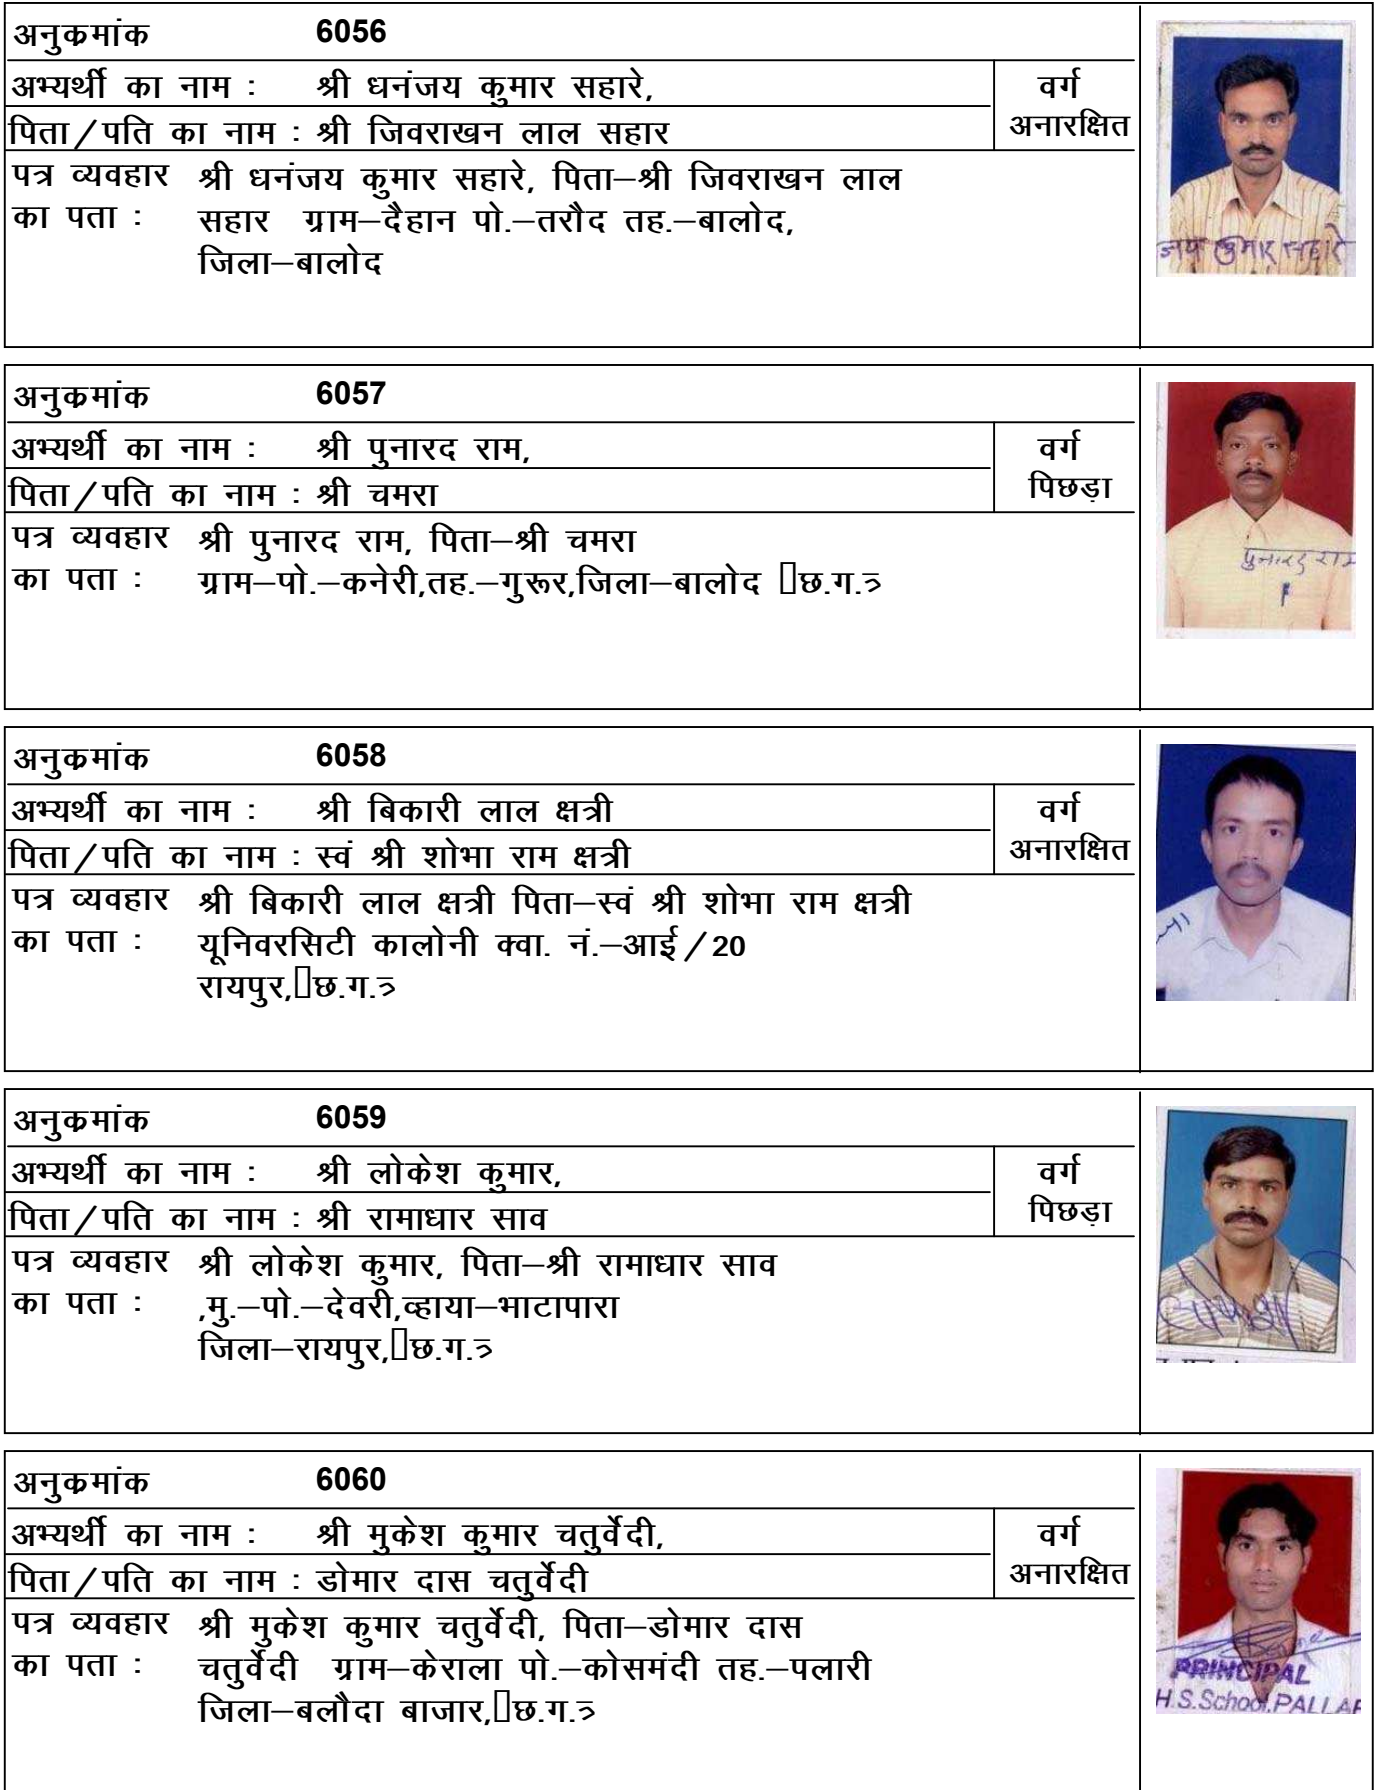 अनुक्रमांक 6056
अभ्यर्थी का नाम : श्री धनंजय कुमार सहारे, वर्ग
पिता/पति का नाम : श्री जिवराखन लाल सहार अनारक्षित
पत्र व्यवहार श्री धनंजय कुमार सहारे, पिता–श्री जिवराखन लाल
का पता : सहार ग्राम–दैहान पो.–तरौद तह.–बालोद,
जिला–बालोद
अनुक्रमांक 6057
अभ्यर्थी का नाम : श्री पुनारद राम, वर्ग
पिता/पति का नाम : श्री चमरा पिछड़ा
पत्र व्यवहार श्री पुनारद राम, पिता–श्री चमरा
का पता : ग्राम–पो.–कनेरी,तह.–गुरूर,जिला–बालोद छ.ग.
पुनारद राम
अनुक्रमांक 6058
अभ्यर्थी का नाम : श्री बिकारी लाल क्षत्री वर्ग
पिता/पति का नाम : स्वं श्री शोभा राम क्षत्री अनारक्षित
पत्र व्यवहार श्री बिकारी लाल क्षत्री पिता–स्वं श्री शोभा राम क्षत्री
का पता : यूनिवरसिटी कालोनी क्वा. नं.–आई/20
रायपुर,छ.ग.
अनुक्रमांक 6059
अभ्यर्थी का नाम : श्री लोकेश कुमार, वर्ग
पिता/पति का नाम : श्री रामाधार साव पिछड़ा
पत्र व्यवहार श्री लोकेश कुमार, पिता–श्री रामाधार साव
का पता : ,मु.–पो.–देवरी,व्हाया–भाटापारा
जिला–रायपुर,छ.ग.
अनुक्रमांक 6060
अभ्यर्थी का नाम : श्री मुकेश कुमार चतुर्वेदी, वर्ग
पिता/पति का नाम : डोमार दास चतुर्वेदी अनारक्षित
पत्र व्यवहार श्री मुकेश कुमार चतुर्वेदी, पिता–डोमार दास
का पता : चतुर्वेदी ग्राम–केराला पो.–कोसमंदी तह.–पलारी
जिला–बलौदा बाजार,छ.ग.
PRINCIPAL
H.S.School,PALLAR